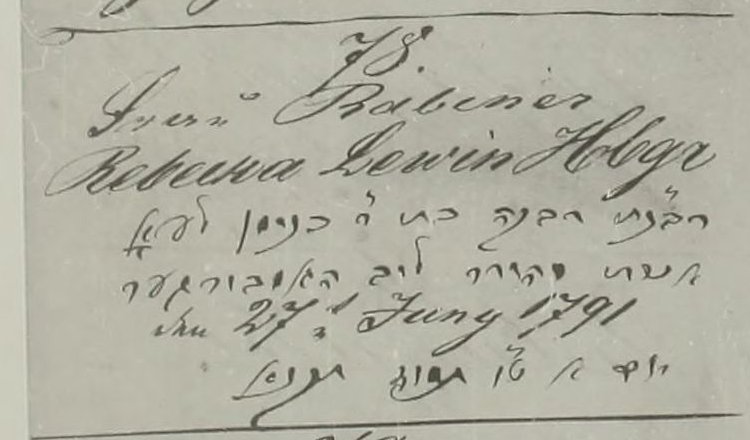 78.
Frau Rabiner
Rebecka Lewin Hbgr
רבקה בת ר' בנימן
אשת מהורר ליב האמבורגער
den 27t Juny 1791
יום א ט"ו תמוז תקנא